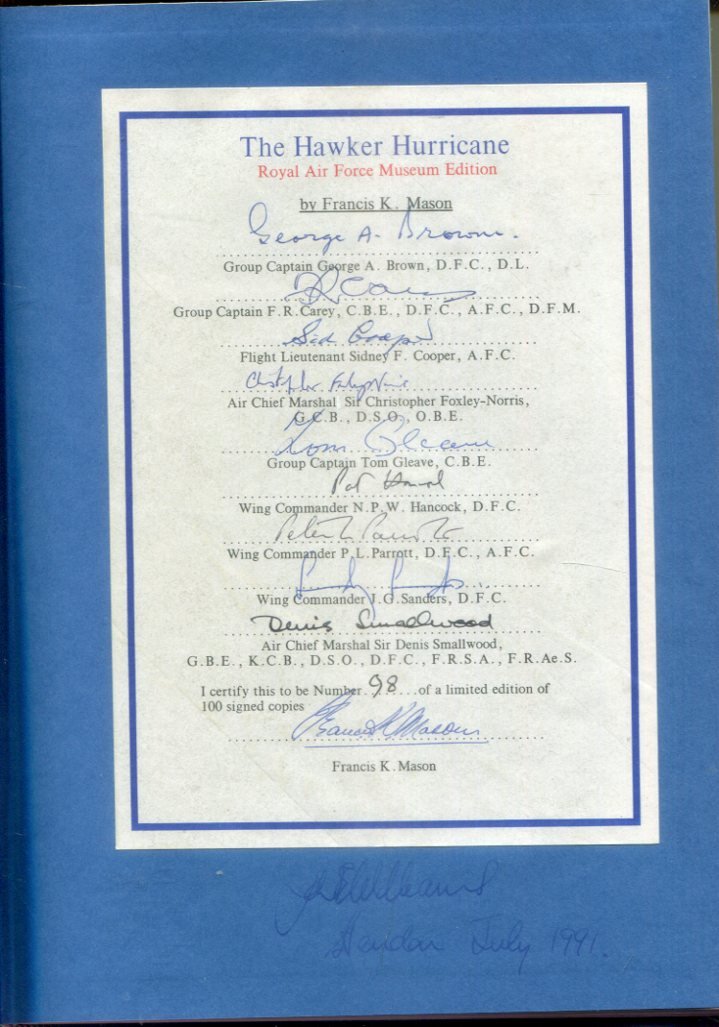 The Hawker Hurricane
Royal Air Force Museum Edition
by Francis K. Mason
George A. Brown.
Group Captain George A. Brown, D.F.C., D.L.
Group Captain F.R.Carey, C.B.E., D.F.C., A.F.C., D.F.M.
Sid Cooper
Flight Lieutenant Sidney F. Cooper, A.F.C.
Christopher Foxley-Norris
Air Chief Marshal Sir Christopher Foxley-Norris,
G.C.B., D.S.O., O.B.E.
Tom Gleave
Group Captain Tom Gleave, C.B.E.
Pat Hancock
Wing Commander N.P.W. Hancock, D.F.C.
Peter L Parrott
Wing Commander P.L.Parrott, D.F.C., A.F.C.
Wing Commander J.G.Sanders, D.F.C.
Denis Smallwood
Air Chief Marshal Sir Denis Smallwood,
G.B.E., K.C.B., D.S.O., D.F.C., F.R.S.A., F.R.Ae.S.
I certify this to be Number.98...of a limited edition of
100 signed copies
Francis K Mason
Francis K. Mason
Williams
Hendon July 1991.